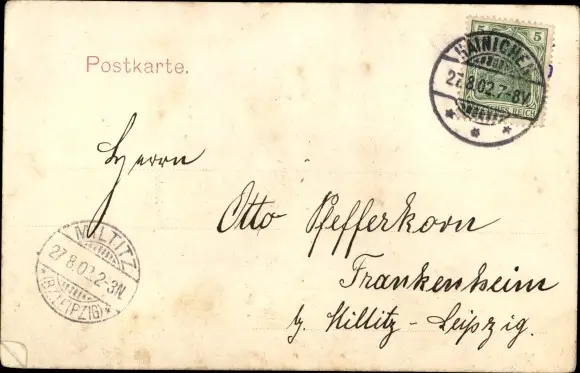 Postkarte.
5 5
HAINICHEN
27.8.02.7-8V.
REICH
Herrn
Otto Pfefferkorn
Frankenheim
b. Miltitz-Leipzig.
MILTITZ
27.8.02.2-3N.
*(BZ. LEIPZIG)*